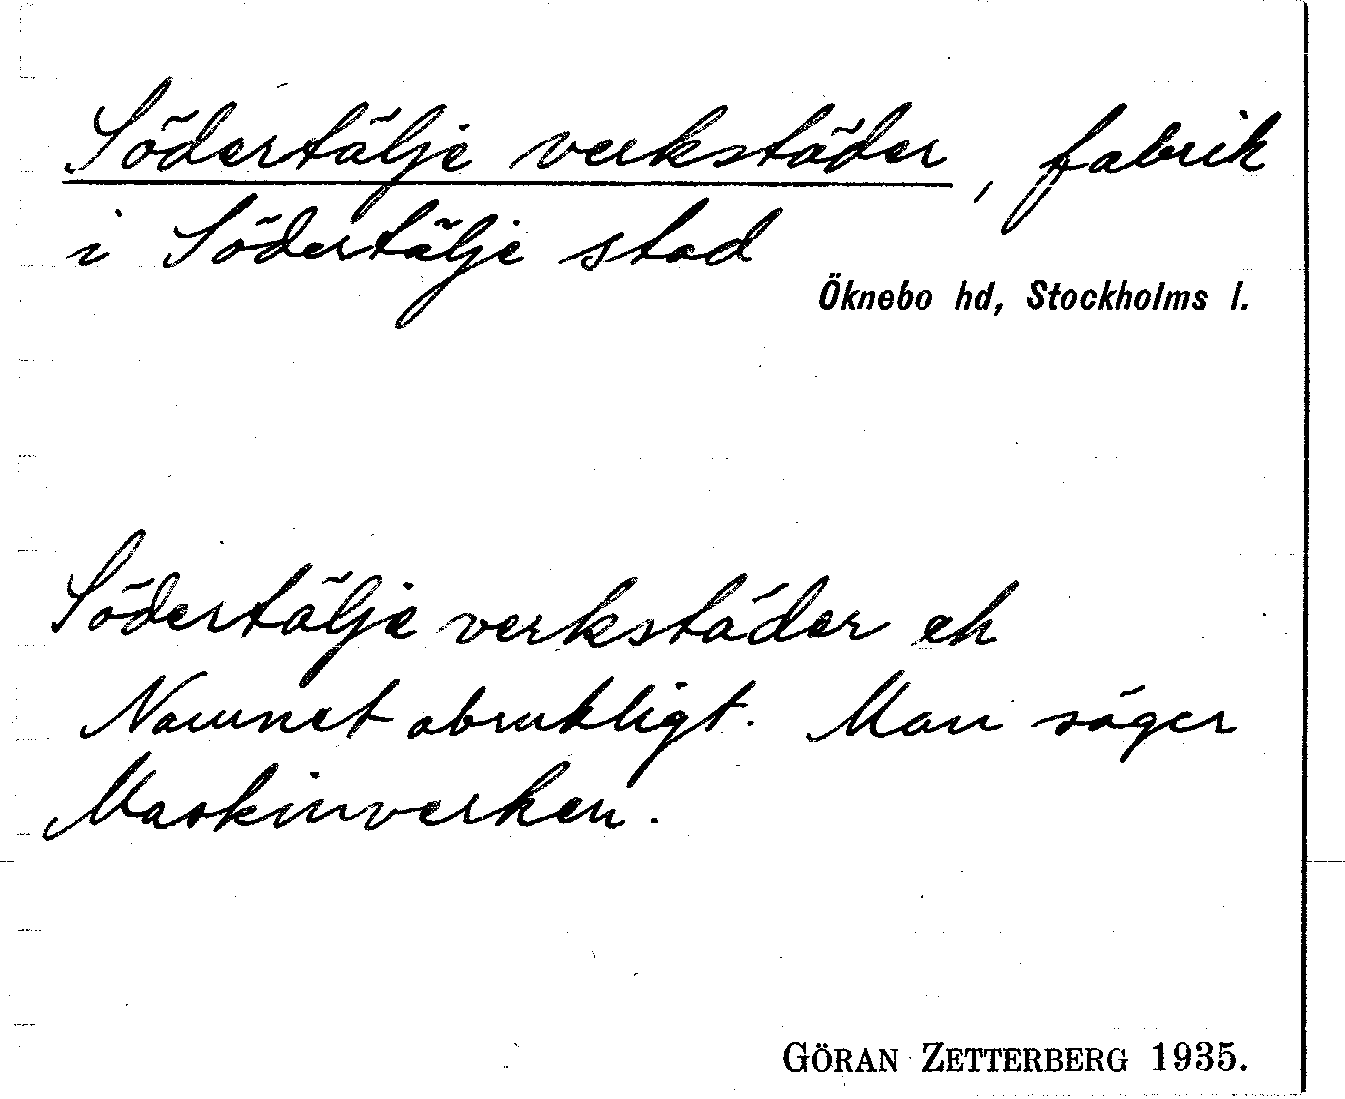 Södertälje verkstäder, fabrik
i Södertälje stad
Öknebo hd, Stockholms l.
Södertälje verkstäder ek
Namnet obrukligt. Man säger
Maskinverken.
GÖRAN ZETTERBERG 1935.